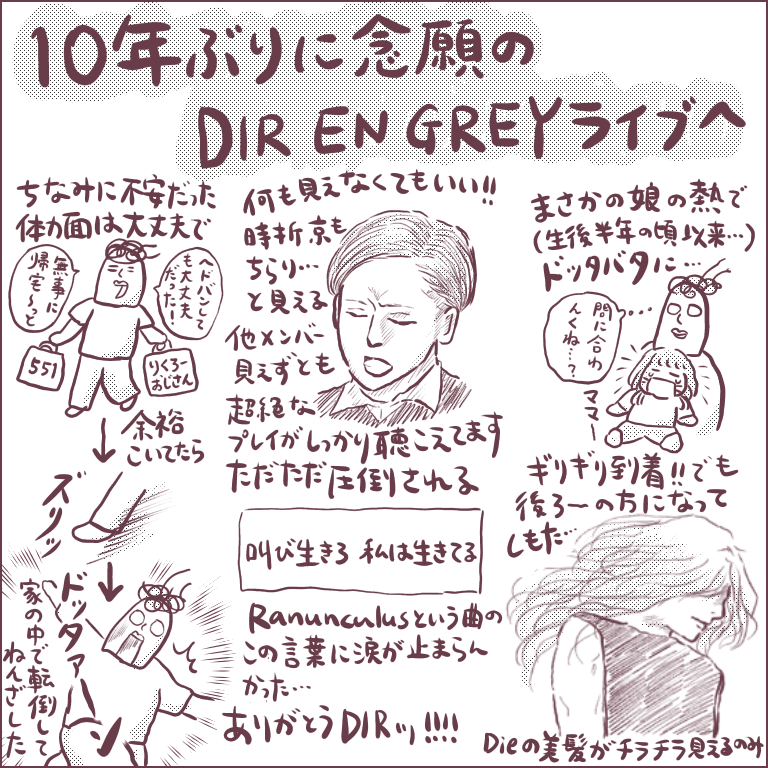 10年ぶりに念願の
DIR EN GREYライブへ
まさかの娘の熱で
(生後半年の頃以来…)
ドッタバタに…
間に合わ
んくね…?
ママー
ギリギリ到着!!でも
後ろーの方になって
しもた…
Dieの美髪がチラチラ見えるのみ
何も見えなくてもいい!!
時折京も
ちらり…
と見える
他メンバー
見えずとも
超絶な
プレイがしっかり聴こえてます
ただただ圧倒される
叫び生きろ 私は生きてる
Ranunculusという曲の
この言葉に涙が止まらん
かった…
ありがとうDIRッ!!!!
ちなみに不安だった
体力面は大丈夫で
ヘドバンして
も大丈夫
だった!
無事に
帰宅〜っと
551
りくろー
おじさん
余裕
こいてたら
ズリッ
ドッタァーン
家の中で転倒して
ねんざした